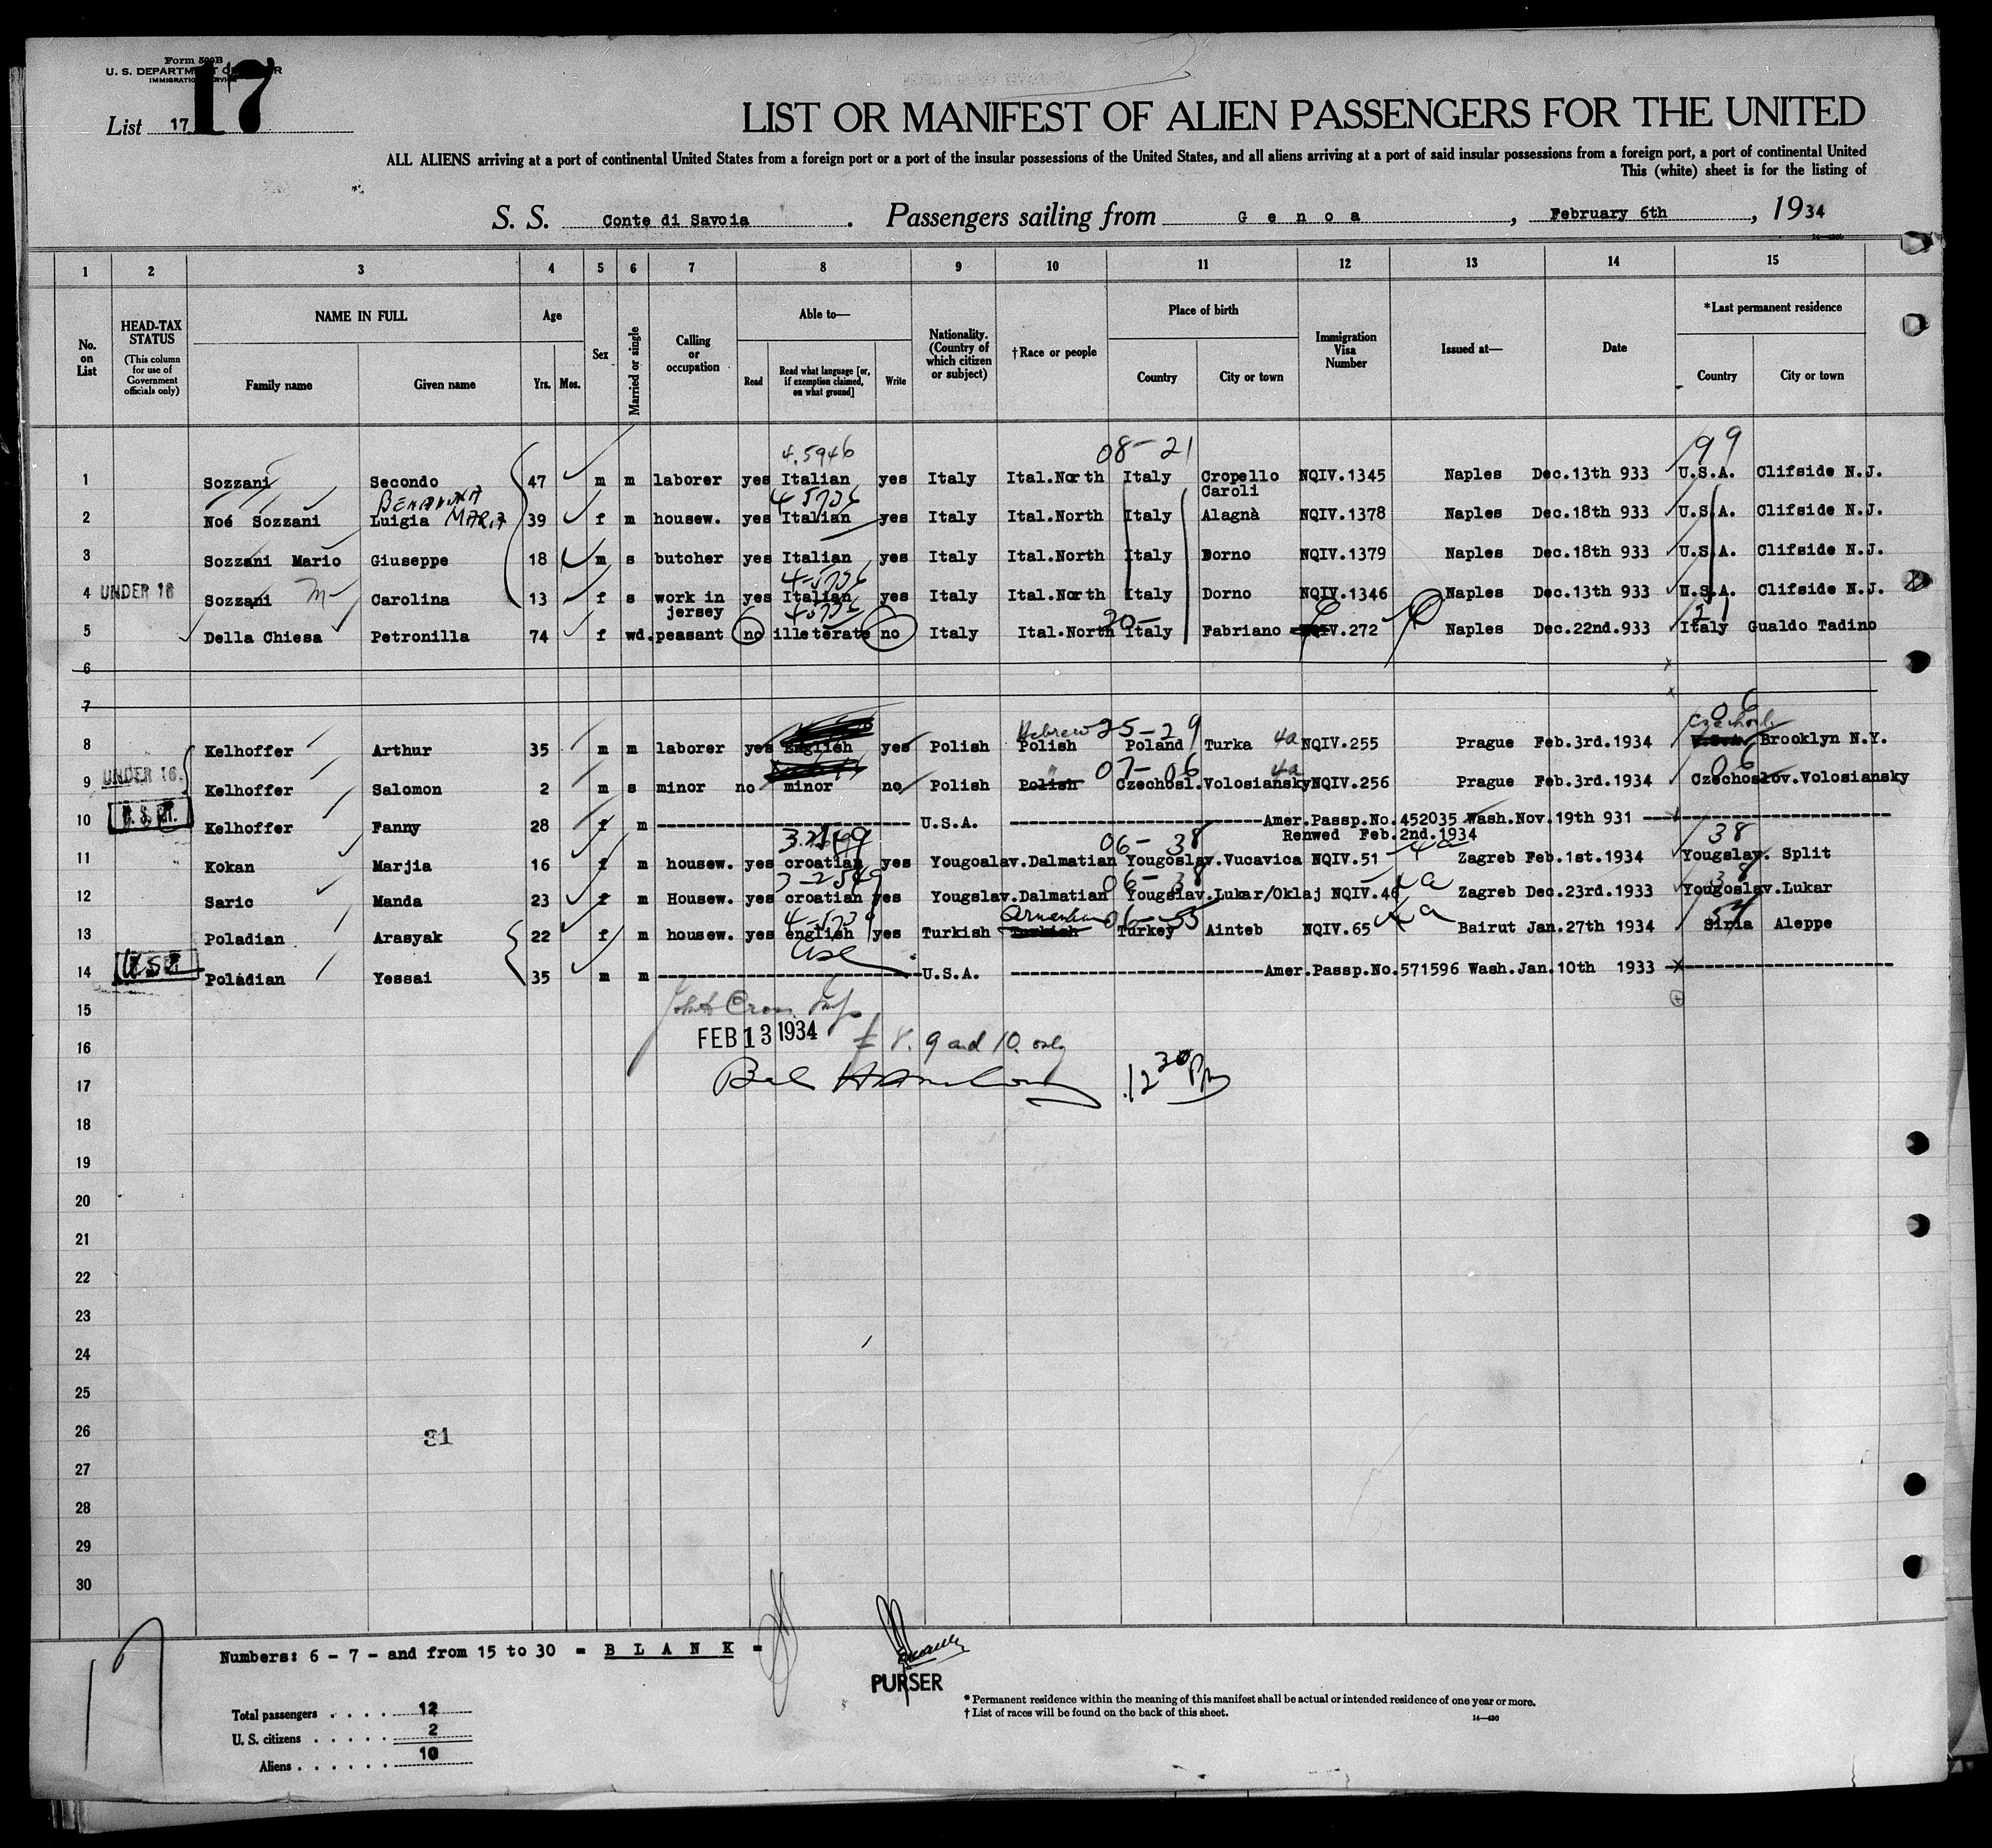 Form 500B
U. S. DEPARTMENT OF LABOR
IMMIGRATION SERVICE
17
List 17
LIST OR MANIFEST OF ALIEN PASSENGERS FOR THE UNITED
ALL ALIENS arriving at a port of continental United States from a foreign port or a port of the insular possessions of the United States, and all aliens arriving at a port of said insular possessions from a foreign port, a port of continental United
This (white) sheet is for the listing of
S. S. Conte di Savoia. Passengers sailing from G e n o a, February 6th, 1934
1 2 3 4 5 6 7 8 9 10 11 12 13 14 15
No. on List
HEAD-TAX STATUS (This column for use of Government officials only)
NAME IN FULL Family name Given name
Age Yrs. Mos.
Sex
Married or single
Calling or occupation
Able to— Read Read what language [or, if exemption claimed, on what ground] Write
Nationality. (Country of which citizen or subject)
†Race or people
Place of birth Country City or town
Immigration Visa Number
Issued at—
Date
*Last permanent residence Country City or town
4.5946 08-21 99
1 Sozzani Secondo 47 m m laborer yes Italian yes Italy Ital.North Italy Cropello Caroli NQIV.1345 Naples Dec.13th 933 U.S.A. Clifside N.J.
BENAVNA 45736
2 Noé Sozzani Luigia MARIA 39 f m housew. yes Italian yes Italy Ital.North Italy Alagnà NQIV.1378 Naples Dec.18th 933 U.S.A. Clifside N.J.
3 Sozzani Mario Giuseppe 18 m s butcher yes Italian yes Italy Ital.North Italy Dorno NQIV.1379 Naples Dec.18th 933 U.S.A. Clifside N.J.
4-5736
4 UNDER 16 Sozzani M Carolina 13 f s work in jersey yes Italian yes Italy Ital.North Italy Dorno NQIV.1346 Naples Dec.13th 933 U.S.A. Clifside N.J.
45736 20- 21
5 Della Chiesa Petronilla 74 f wd. peasant no illeterate no Italy Ital.North Italy Fabriano NQIV.272 Naples Dec.22nd.933 Italy Gualdo Tadino
6
7
Hebrew 25-29 06 Czechosl.
8 Kelhoffer Arthur 35 m m laborer yes English yes Polish Polish Poland Turka 4a NQIV.255 Prague Feb.3rd.1934 U.S.A. Brooklyn N.Y.
" 07-06 4a 06
9 UNDER 16. Kelhoffer Salomon 2 m s minor no minor no Polish Polish Czechosl. Volosiansky NQIV.256 Prague Feb.3rd.1934 Czechoslov. Volosiansky
10 Kelhoffer Fanny 28 f m U.S.A. Amer.Passp.No.452035 Wash.Nov.19th 931
Renwed Feb.2nd.1934
06-38 4a 38
11 Kokan Marjia 16 f m housew. yes croatian yes Yougoalav. Dalmatian Yougoslav. Vucavica NQIV.51 Zagreb Feb.1st.1934 Yougslav. Split
3-2549 06-38 4a 38
12 Saric Manda 23 f m Housew. yes croatian yes Yougslav. Dalmatian Yougslav. Lukar/Oklaj NQIV.46 Zagreb Dec.23rd.1933 Yougoslav. Lukar
4-5739 Armenian 06-55 4a 54
13 Poladian Arasyak 22 f m housew. yes english yes Turkish Turkish Turkey Ainteb NQIV.65 Bairut Jan.27th 1934 Siria Aleppe
USC
14 Poladian Yessai 35 m m U.S.A. Amer.Passp.No.571596 Wash.Jan.10th 1933
15
FEB 13 1934
16 8. 9 and 10. only
17 12 30 Pm
18
19
20
21
22
23
24
25
26 31
27
28
29
30
17
Numbers: 6 - 7 - and from 15 to 30 = B L A N K =
PURSER
* Permanent residence within the meaning of this manifest shall be actual or intended residence of one year or more.
† List of races will be found on the back of this sheet.
14—430
Total passengers . . . . 12
U. S. citizens . . . . . 2
Aliens . . . . . . 10